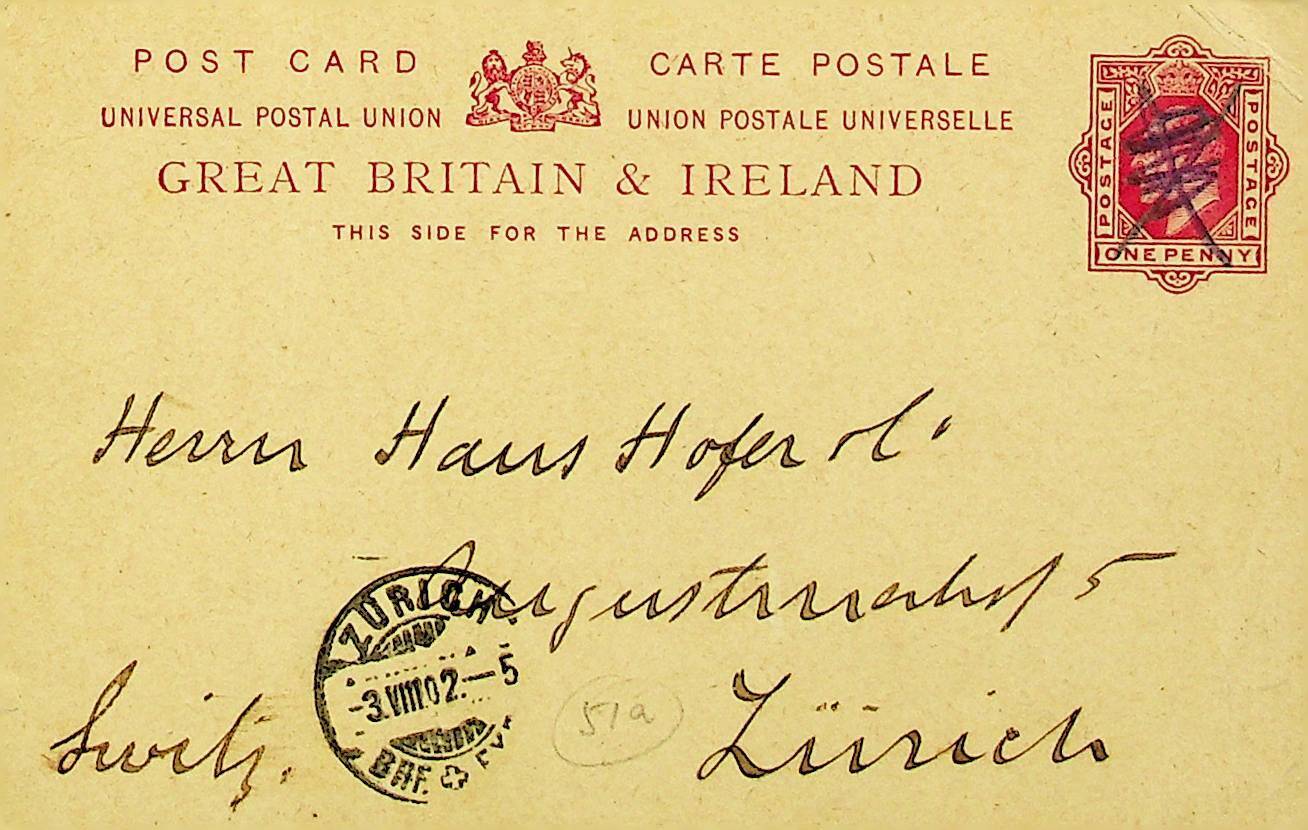 POST CARD CARTE POSTALE
UNIVERSAL POSTAL UNION UNION POSTALE UNIVERSELLE
GREAT BRITAIN & IRELAND
THIS SIDE FOR THE ADDRESS
POSTAGE POSTAGE
ONE PENNY
Herrn Hans Hofer
Augustinerhof 5
Zürich
Switz.
ZÜRICH
-3.VIII.02.-5
BRF.
51a